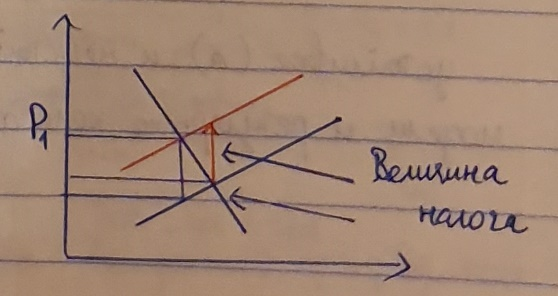 P1
Величина
налога